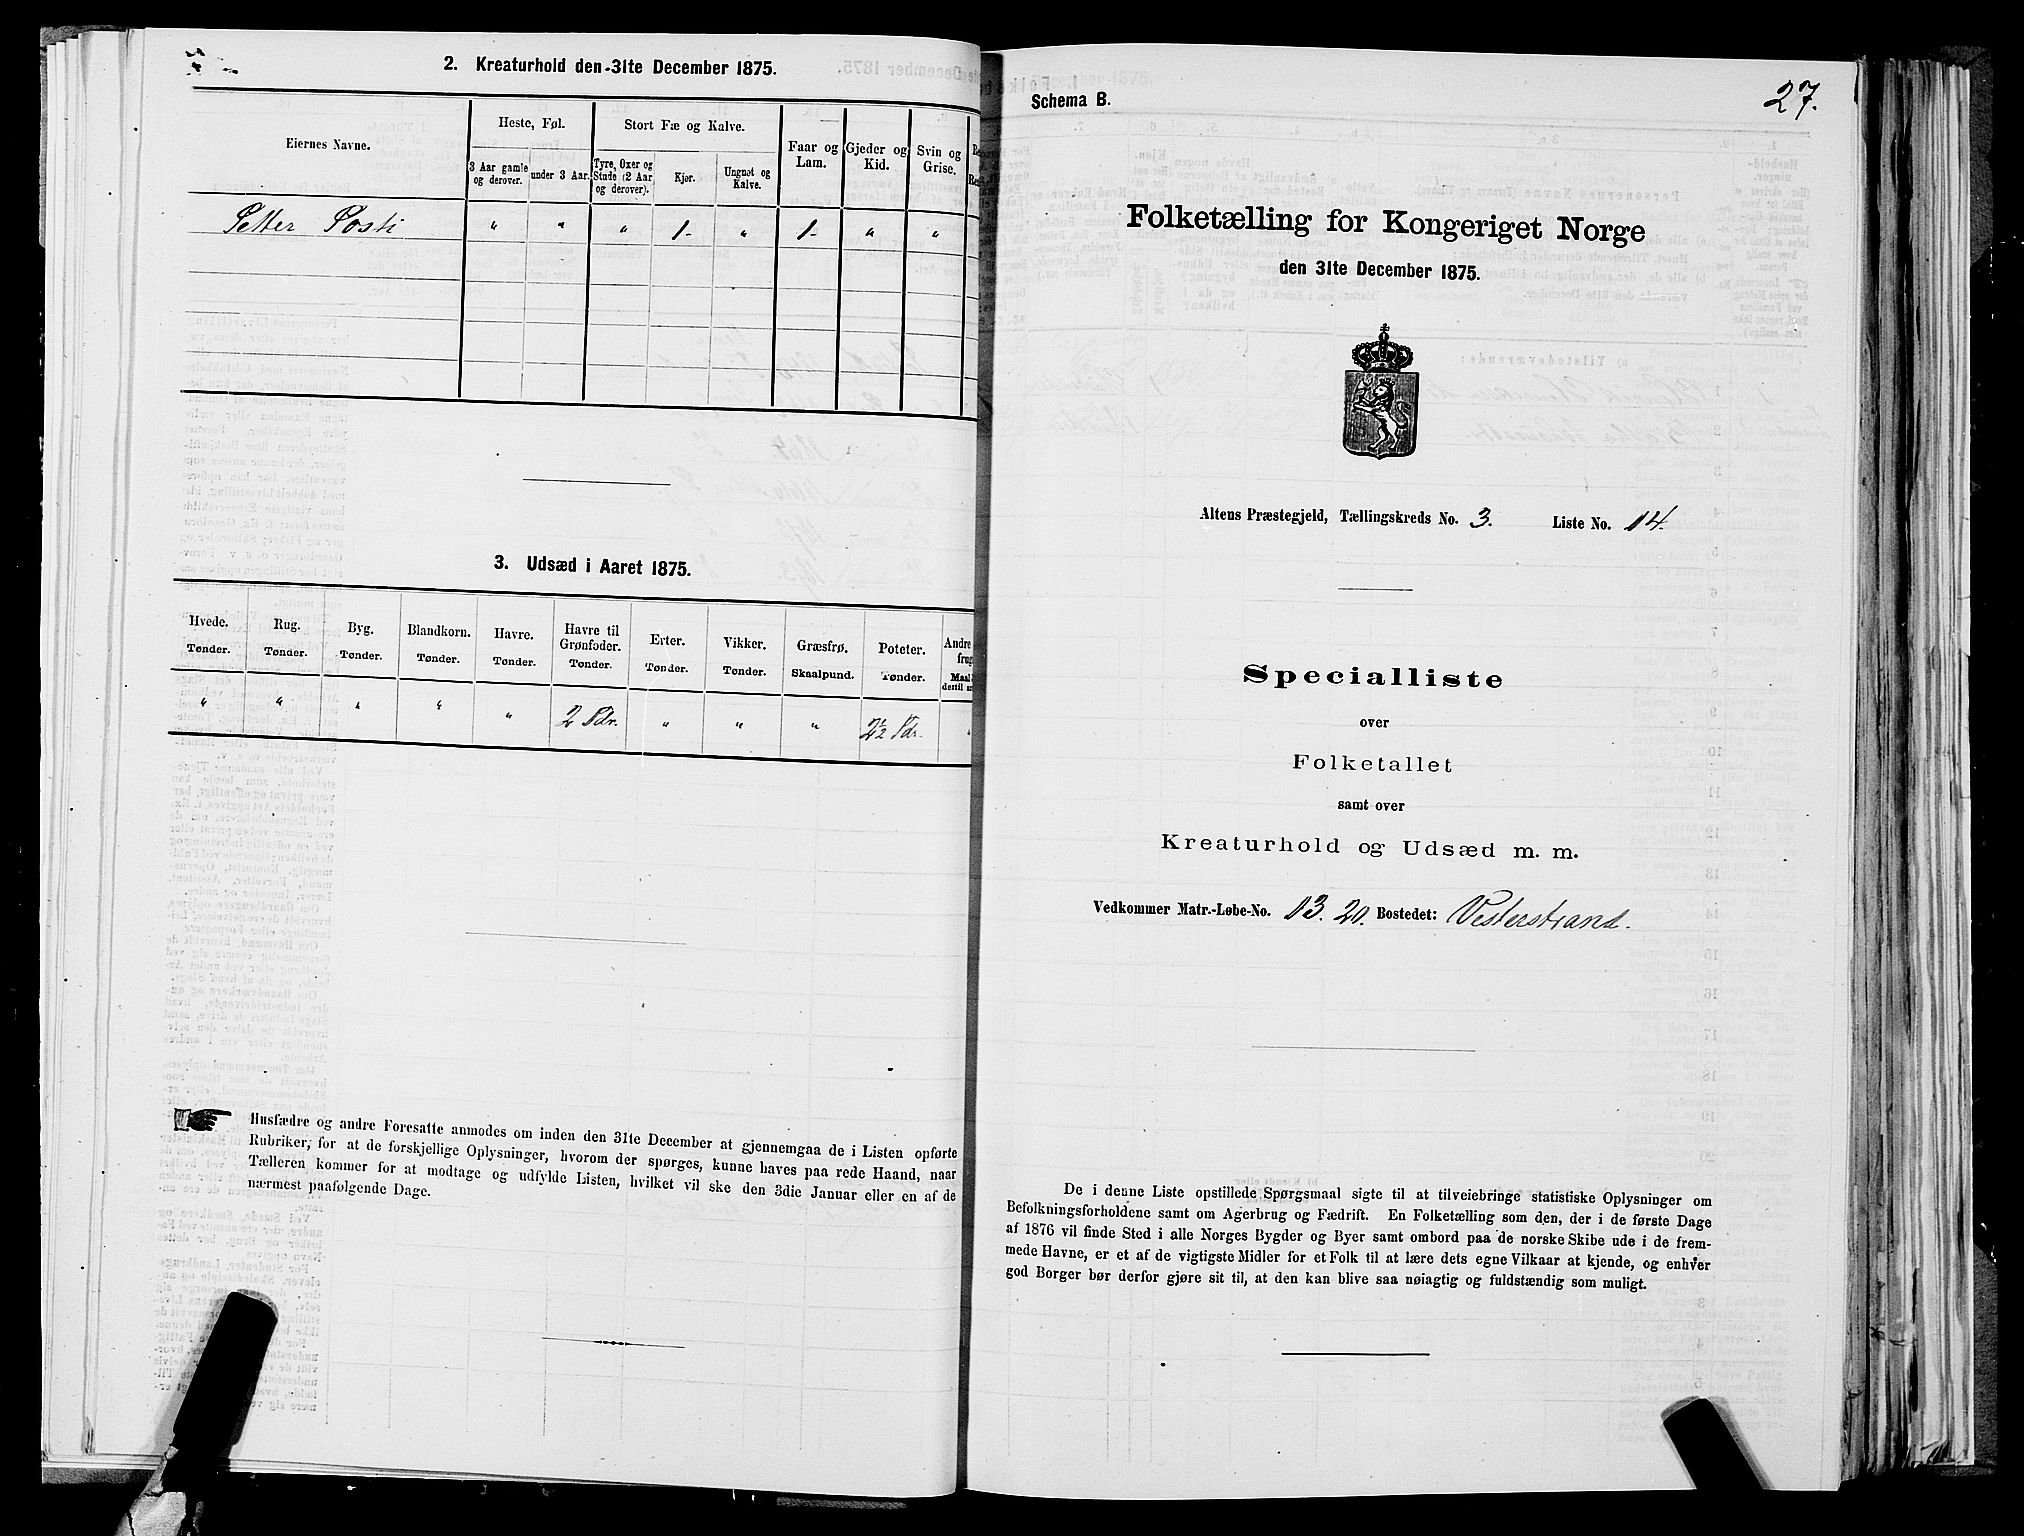 2. Kreaturhold den 31te December 1875.
Eiernes Navne.
Heste, Føl.
Stort Fæ og Kalve.
Faar og Lam.
Gjeder og Kid.
Svin og Grise.
3 Aar gamle og derover.
under 3 Aar.
Tyre, Oxer og Stude (2 Aar og derover).
Kjør.
Ungnøt og Kalve.
Petter Posti " " " 1- " 1- " "
3. Udsæd i Aaret 1875.
Hvede. Rug. Byg. Blandkorn. Havre. Havre til Grønfoder. Erter. Vikker. Græsfrø. Poteter. Andre
Tønder. Tønder. Tønder. Tønder. Tønder. Tønder. Tønder. Tønder. Skaalpund. Tønder.
" " " " " 2 Tdr. " " " 2½ Tdr. "
Husfædre og andre Foresatte anmodes om inden den 31te December at gjennemgaa de i Listen opførte
Rubriker, for at de forskjellige Oplysninger, hvorom der spørges, kunne haves paa rede Haand, naar
Tælleren kommer for at modtage og udfylde Listen, hvilket vil ske den 3die Januar eller en af de
nærmest paafølgende Dage.
27.
Schema B.
Folketælling for Kongeriget Norge
den 31te December 1875.
Altens Præstegjeld, Tællingskreds No. 3. Liste No. 14.
Specialliste
over
Folketallet
samt over
Kreaturhold og Udsæd m. m.
Vedkommer Matr.-Løbe-No. 13.20. Bostedet: Vesterstrand.
De i denne Liste opstillede Spørgsmaal sigte til at tilveiebringe statistiske Oplysninger om
Befolkningsforholdene samt om Agerbrug og Fædrift. En Folketælling som den, der i de første Dage
af 1876 vil finde Sted i alle Norges Bygder og Byer samt ombord paa de norske Skibe ude i de frem-
mede Havne, er et af de vigtigste Midler for et Folk til at lære dets egne Vilkaar at kjende, og enhver
god Borger bør derfor gjøre sit til, at den kan blive saa nøiagtig og fuldstændig som muligt.